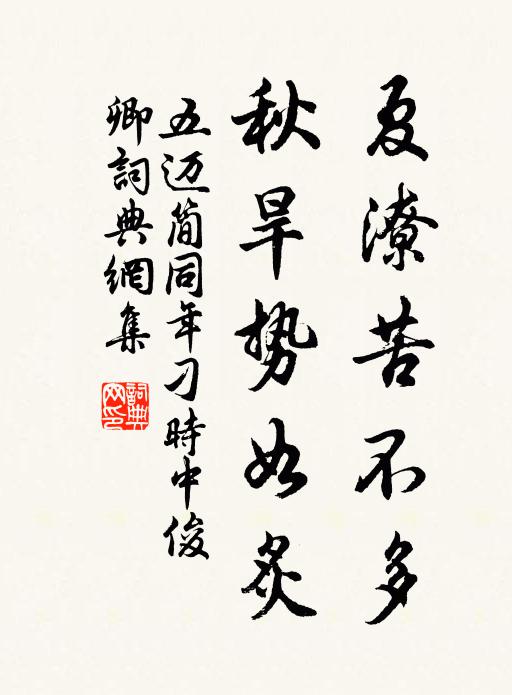 夏潦苦不多
秋旱势如炙
五迈简同年刁時中俊
卿詞典網集
詞典网印